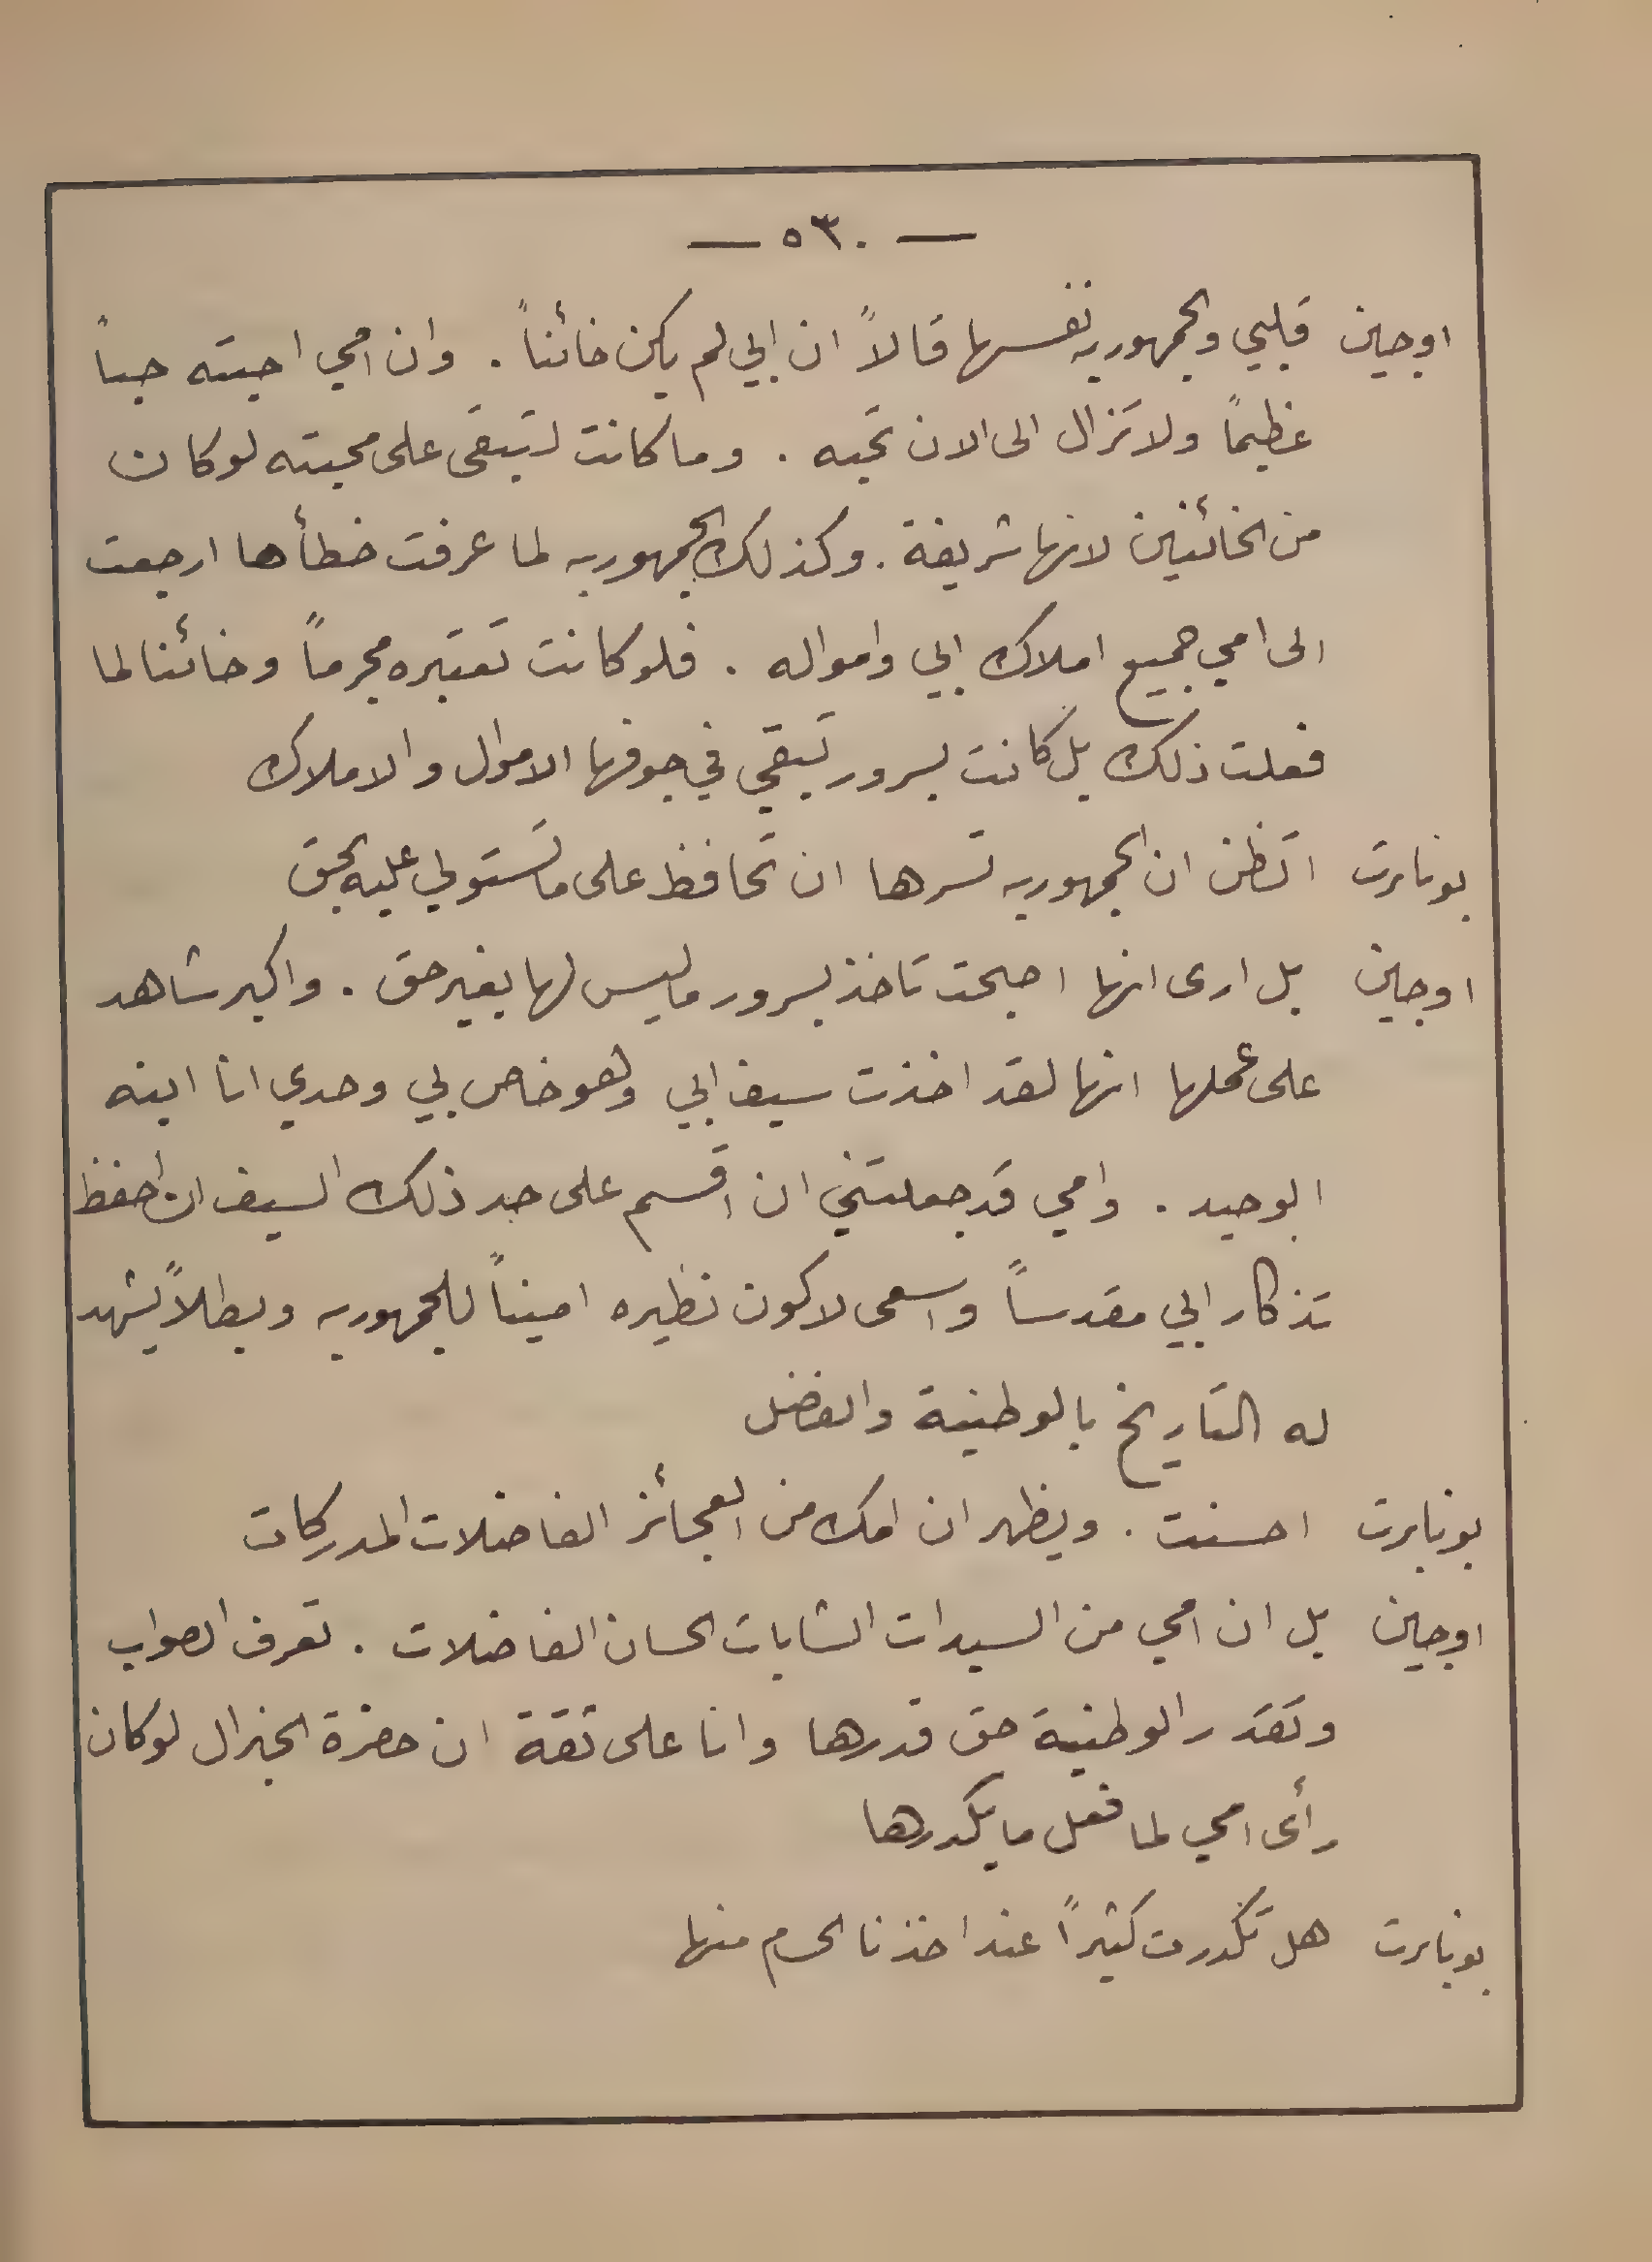 — ٥٣٠ —
اوجين قلبي والجمهوريه نفسها قالاً ان ابي لم يكن خائناً . وان امي احبته حباً
عظيماً ولا تزال الى الان تحبه . وما كانت لتبقى على محبته لو كان
من الخائنين لانها شريفة . وكذلك الجمهوريه لما عرفت خطأها ارجعت
الى امي جميع املاك ابي وامواله . فلو كانت تعتبره مجرماً وخائنا لما
فعلت ذلك بل كانت بسرور تبقي في جوفها الاموال والاملاك
بونابرت اتظن ان الجمهوريه تسرها ان تحافظ على ما تستولي عليه بحق
اوجين بل ارى انها اصبحت تاخذ بسرور ما ليس لها بغير حق . واكبر شاهد
على عملها انها لقد اخذت سيف ابي وهو خاص بي وحدي انا ابنه
الوحيد . وامي قد جعلتني ان اقسم على حد ذلك السيف ان احفظ
تذكار ابي مقدساً واسعى لاكون نظيره اميناً للجمهوريه وبطلاً يشهد
له التاريخ بالوطنية والفضل
بونابرت احسنت . ويظهر ان امك من العجائز الفاضلات المدركات
اوجين بل ان امي من السيدات الشابات الحسان الفاضلات . تعرف الصواب
وتقدر الوطنية حق قدرها وانا على ثقة ان حضرة الجنرال لو كان
رأى امي لما فعل ما يكدرها
بونابرت هل تكدرت كثيراً عند اخذنا الحسام منها